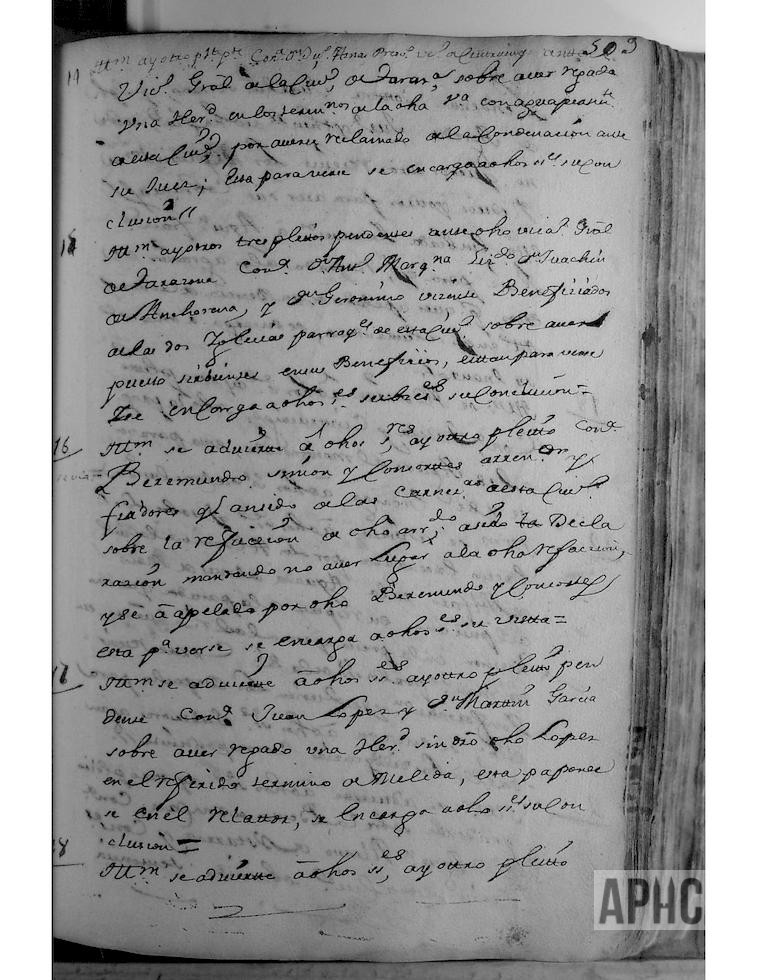 503
14 Ittm ay otro pltº pte Conª Dn
Vicº Gral de la Ciud de Tarazª sobre aver regado
Vna Herd en los terminos de la dha Va con agua
de esta Ciud, por averse reclamado de la Condenacion ante
su Juez; Esta para verse se encarga a dhos sres su con
clusion //
15 Ittm ay otros tres pleitos pendentes ante dho vicaº Gral
de Tarazona Conª Dn Antº Margna Lizdo Dn Juachin
de Anchorena, y Dn Geronimo Beneficiados
de las dos Iglesias parroqs de esta Ciud sobre aver
puesto sirbientes en sus Beneficios, estan para verse
y se encarga a dhos sres su Conclusion =
16 Ittm se advierte a dhos sres ay otro pleito Conª
Beremundo Simon y Consortes arrendor y
fiadores q han sido de las Carnerias de esta Ciud
sobre la refaccion de dho arrdo; a sido la Decla
razion mandando no aver Lugar a la dha refaccion,
y se a apelado por dho Beremundo y Consortes
esta pª verse se encarga a dhos sres su vista =
17 Ittm se advierte a dhos sres ay otro pleito pen
dente Conª Juan Lopez y Dn Martin Garcia
sobre aver regado vna Herd sin dro dho Lopez
en el referido termino de Melida, esta pa poner
se en el relator, se Encarga a dhos sres su con
clusion =
18 Ittm se advierte a dhos sres, ay otro pleito
APHC